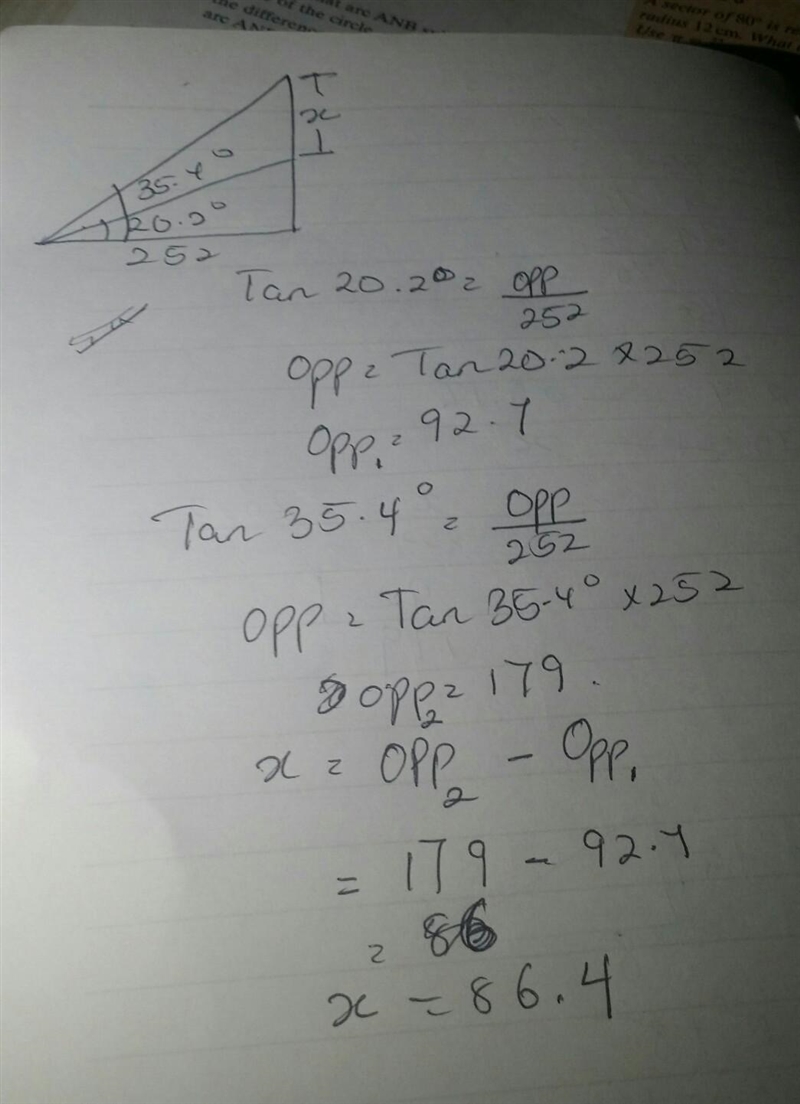 at arc ANB
of the circle
the differen
arc AN
A sector of 80° is re
radius 12 cm. What
T
x
1
35.4°
20.2°
252
Tan 20.2° = opp/252
opp = Tan 20.2 × 252
Opp₁ = 92.7
Tan 35.4° = Opp/252
opp = Tan 35.4° × 252
opp₂ = 179.
x = opp₂ - Opp₁
= 179 - 92.7
= 86
x = 86.4